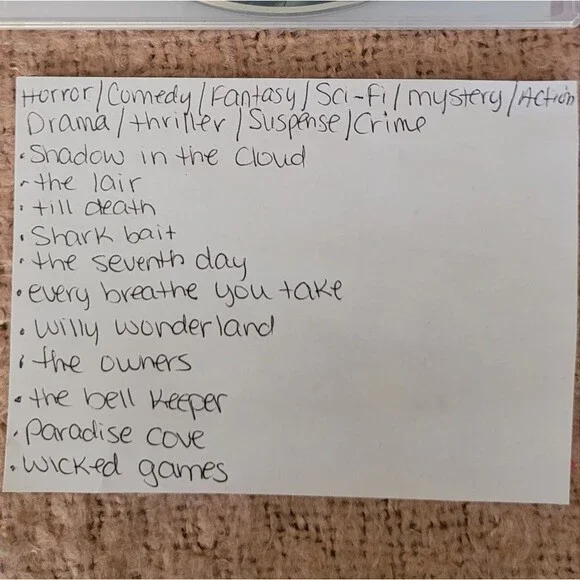 Horror/Comedy/Fantasy/Sci-Fi/mystery/Action
Drama/thriller/Suspense/Crime
• Shadow in the Cloud
• the lair
• till death
• Shark bait
• the seventh day
• every breathe you take
• willy wonderland
• the owners
• the bell keeper
• Paradise cove
• wicked games